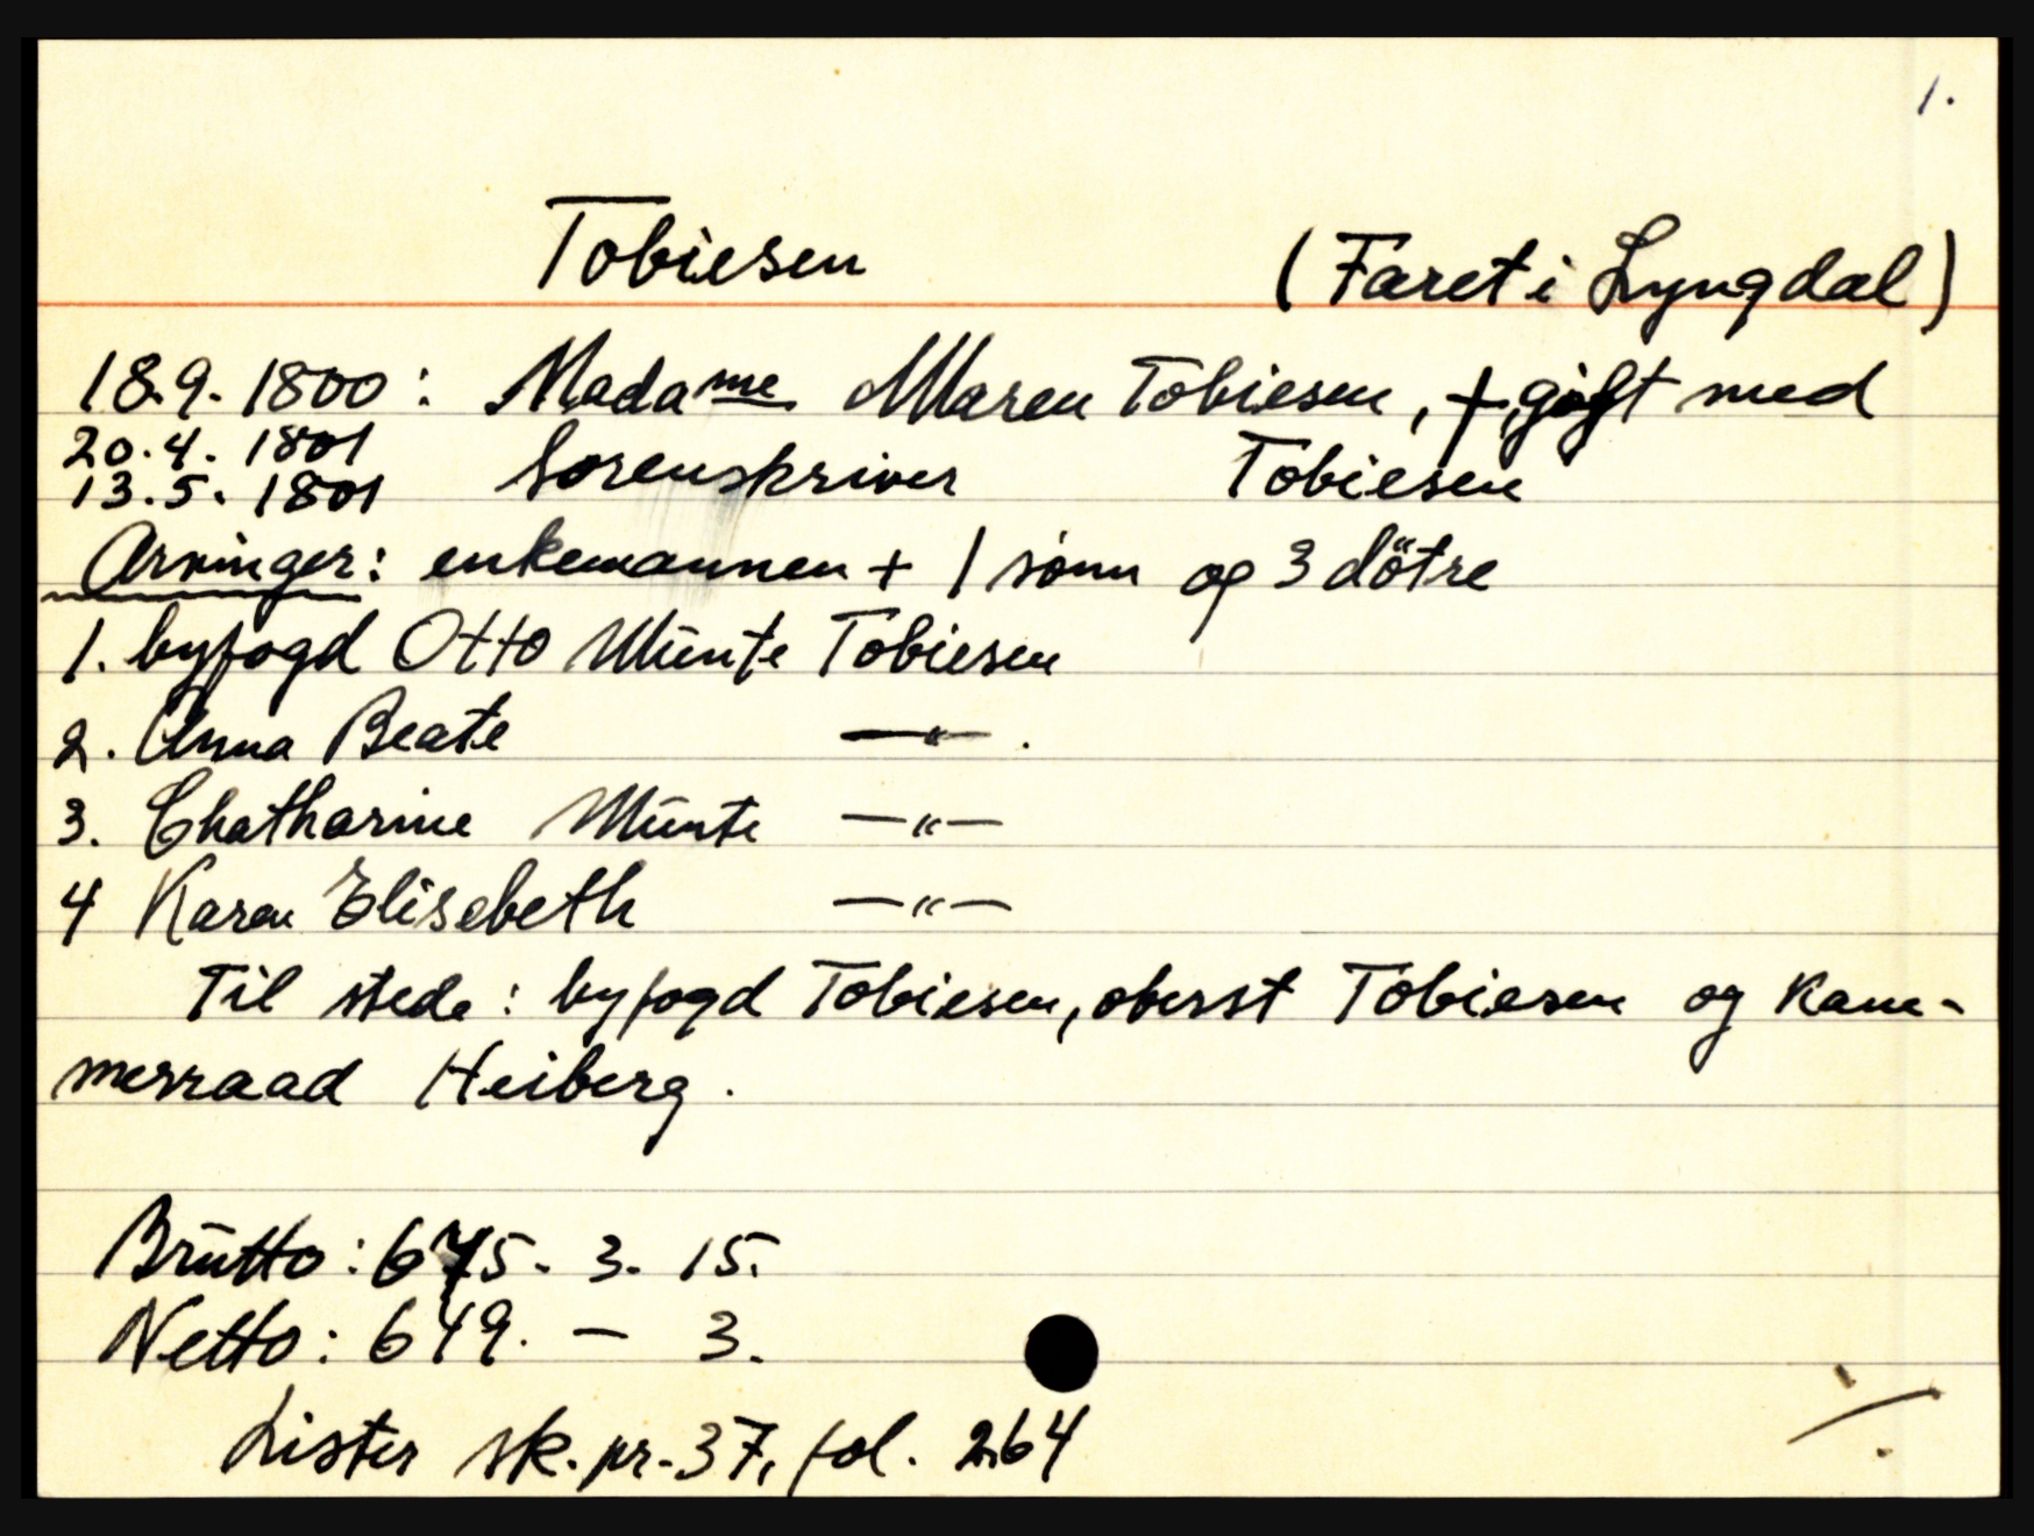 1.
Tobiesen (Faret i Lyngdal)
18.9. 1800: Madame Maren Tobiesen, +, gift med
20.4. 1801
13.5. 1801 Sorenskriver Tobiesen
Arvinger: enkemannen + 1 sønn og 3 dötre
1. byfogd Otto Münte Tobiesen
2. Anna Beate —"— .
3. Chatharine Münte —"—
4 Karen Elisebeth —"—
Til stede: byfogd Tobiesen, oberst Tobiesen og Kam-
merraad Heiberg.
Brūtto: 675. 3. 15.
Netto: 649. — 3.
Lister sk. pr. 37, fol. 264
·/.